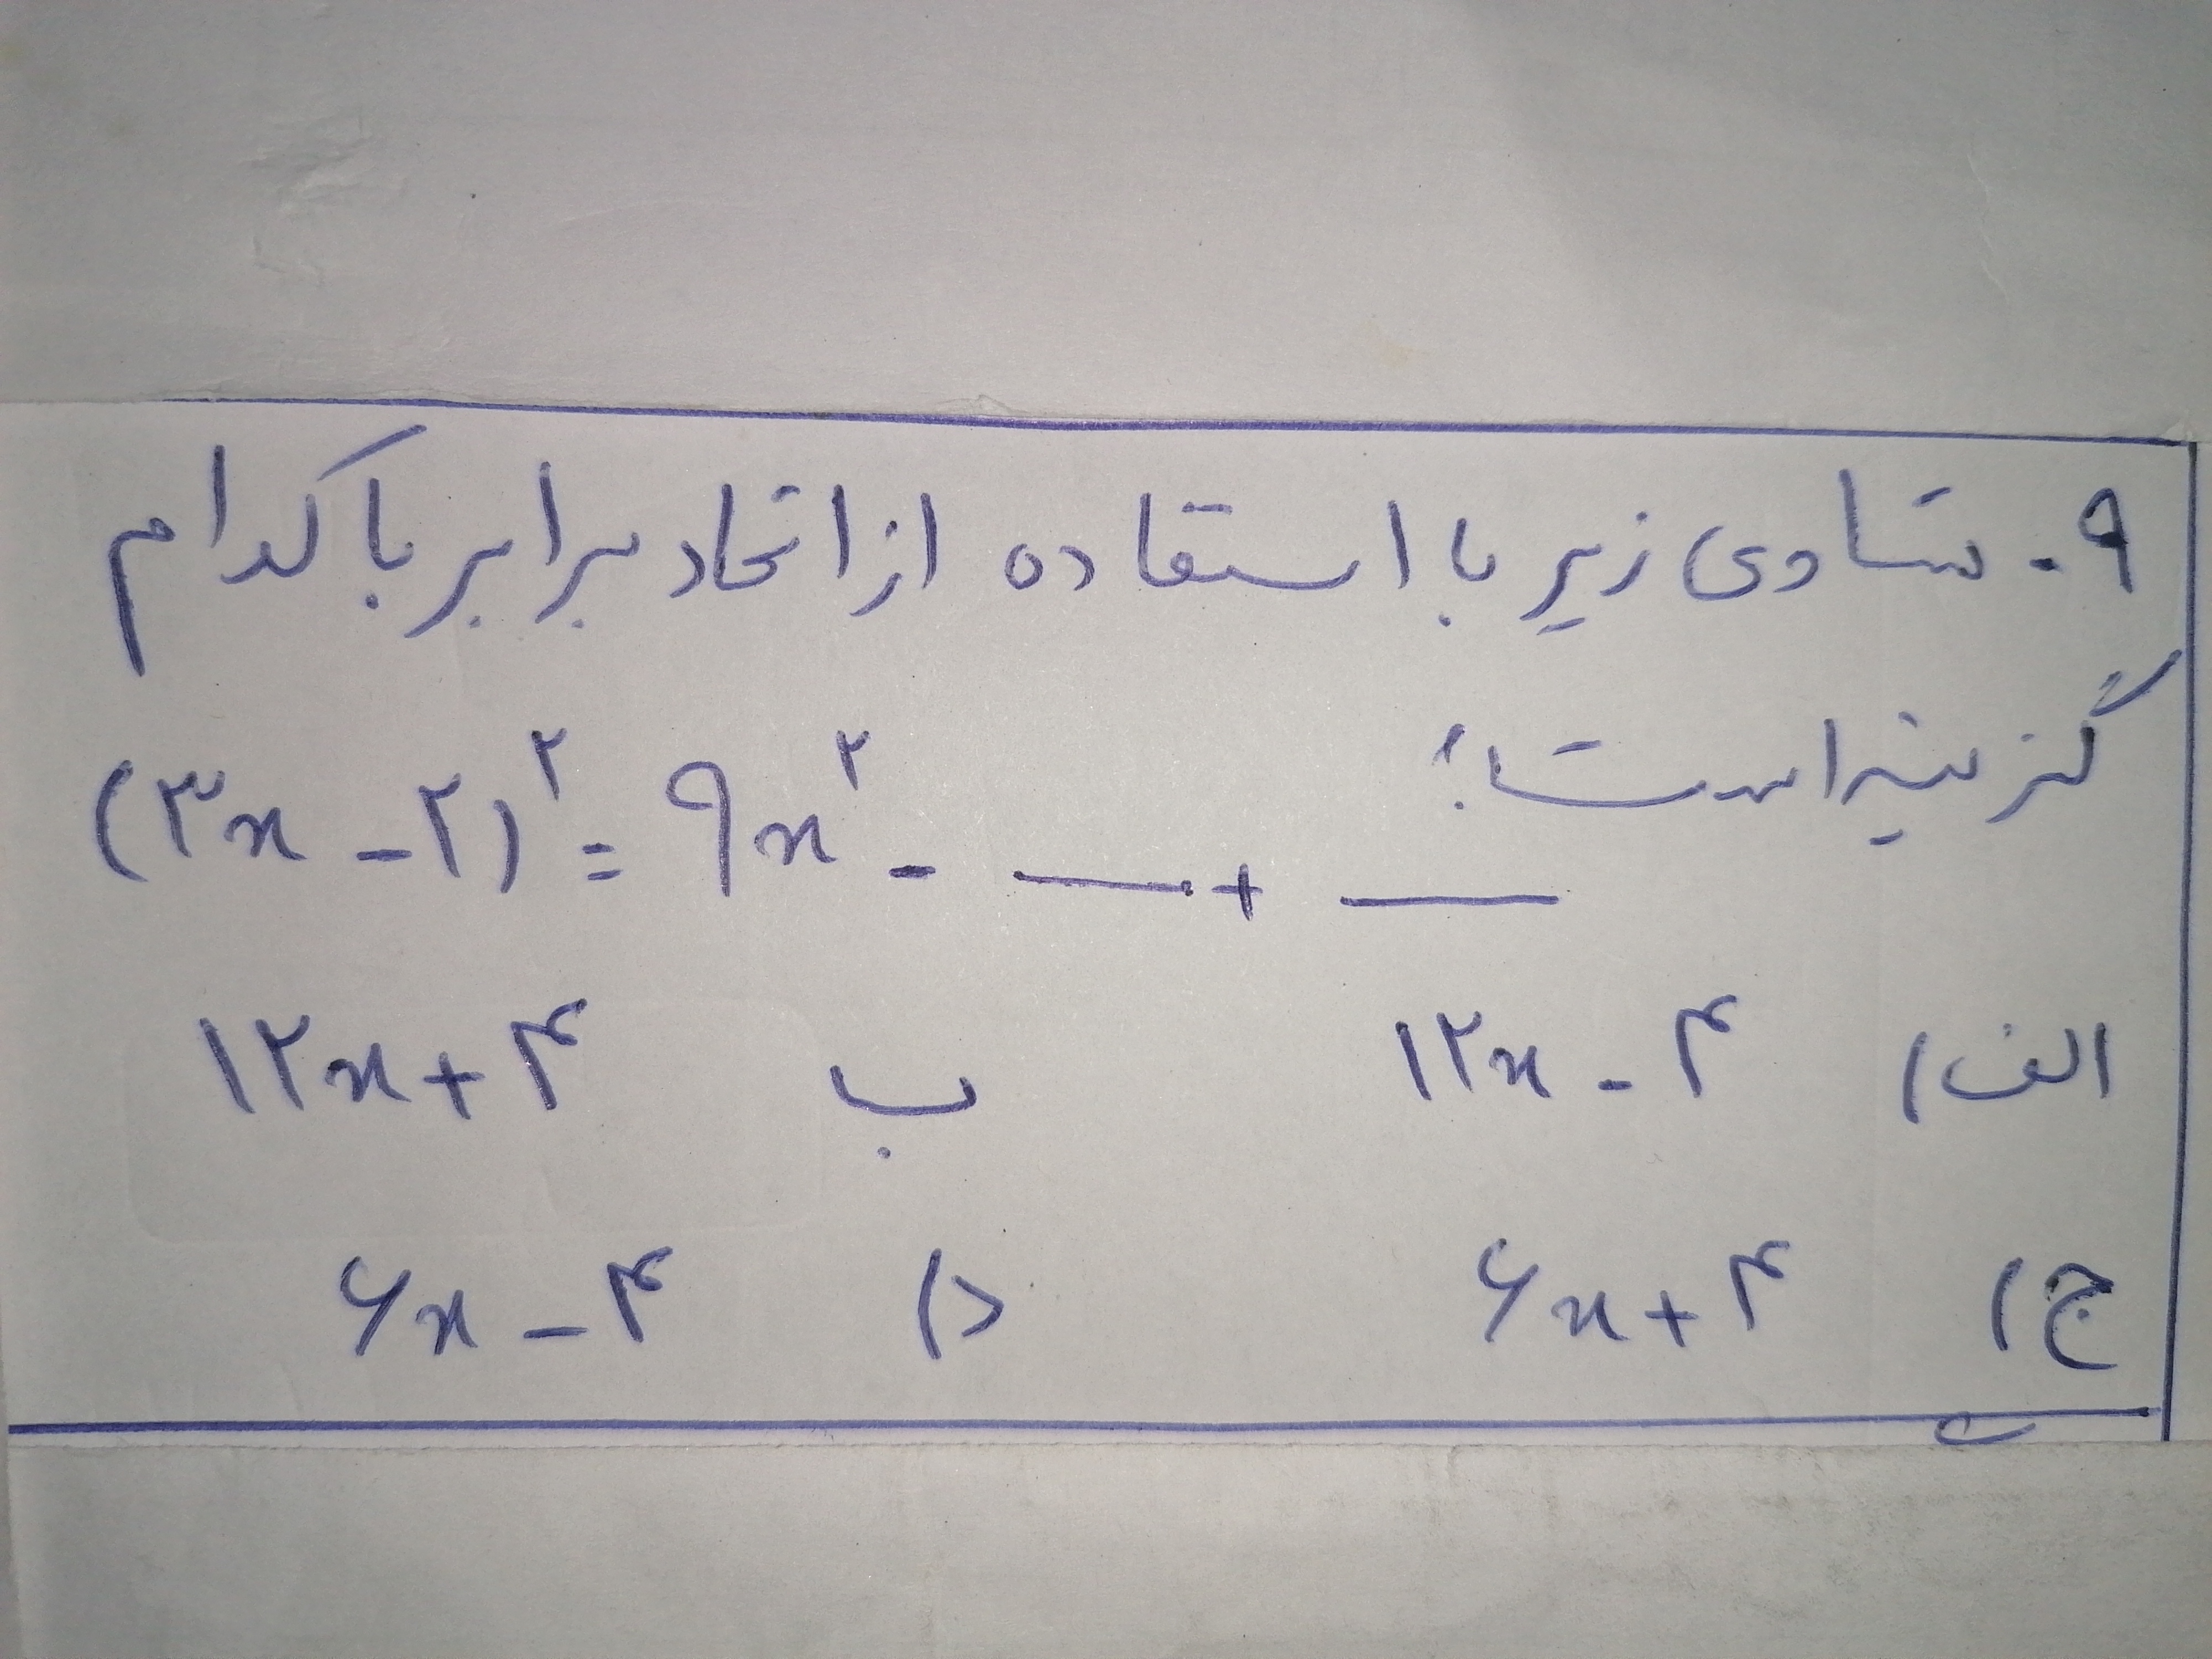 ۹. تساوی زیر با استفاده از اتحاد برابر با کدام
گزینه است؛
(۳x - ۲)^۲ = ۹x^۲ - ___ + ___
الف) ۱۲x - ۴ ب ۱۲x + ۴
ج) ۶x + ۴ د) ۶x - ۴